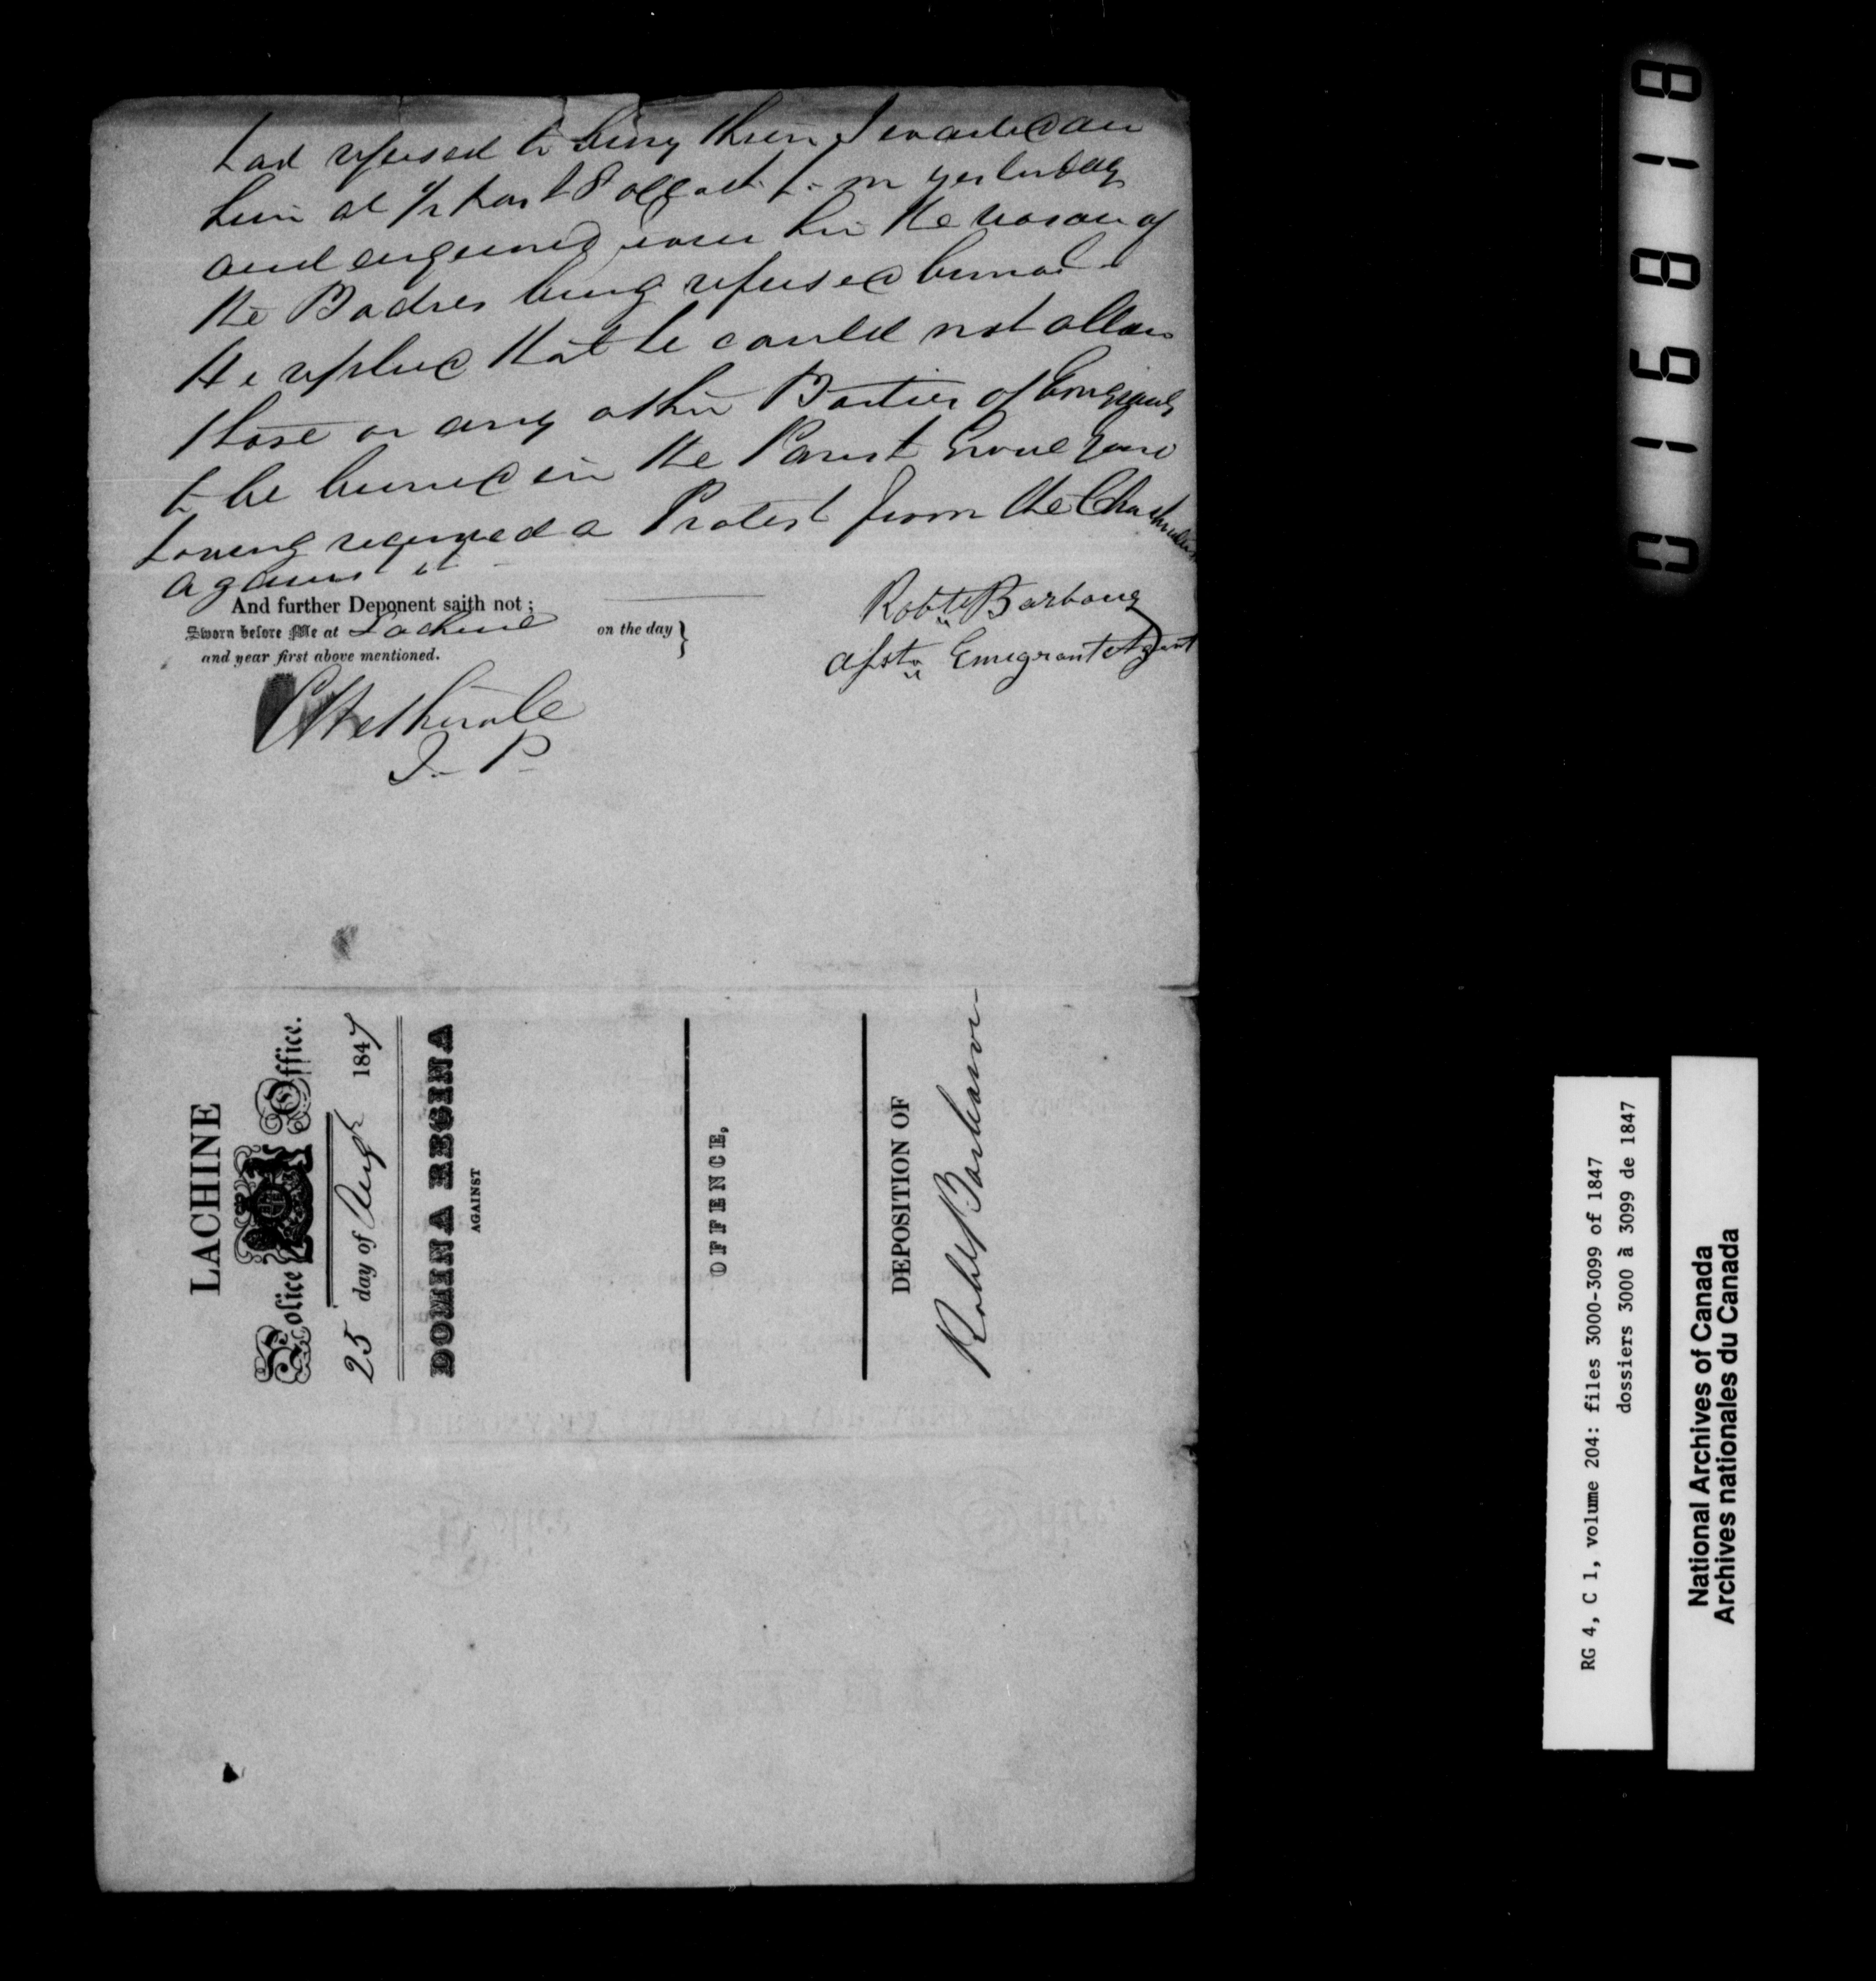 had refused to bury them I waited on
him at 1/2 past 8 o'clock P.m yesterday
and enquired from him the reason of
the Bodies being refused burial
He replied that he could not allow
those or any other Bodies of Emigrants
to be buried in the Parish Grave Yard
having received a Protest from the Churchwardens
against it
And further Deponent saith not ;
Sworn before Me at Lachine on the day }
and year first above mentioned.
Robt Barbour
Asst Emigrant Agent
J. P.
LACHINE
Police Office.
25 day of Augt 1847
DOMINA REGINA
AGAINST
OFFENCE,
DEPOSITION OF
Robt Barbour
016818
RG 4, C 1, volume 204: files 3000-3099 of 1847
dossiers 3000 à 3099 de 1847
National Archives of Canada
Archives nationales du Canada